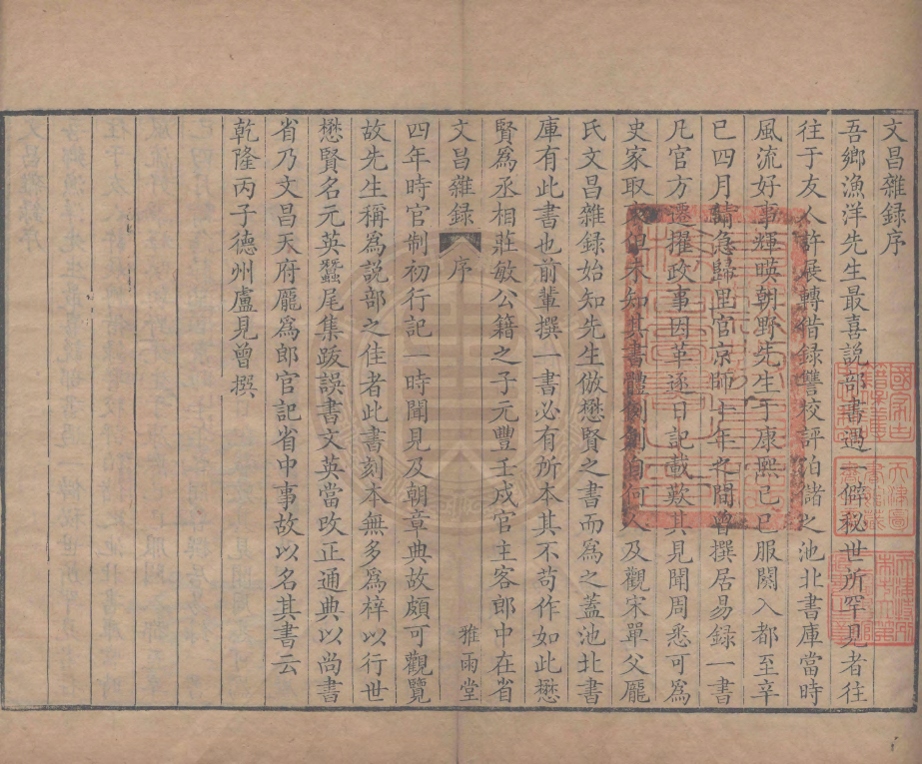 文昌雜録序
吾鄉漁洋先生最喜説部書遇一僻秘世所罕見者往
往于友人許展轉借録讐校評泊儲之池北書庫當時
風流好事輝暎朝野先生于康熙己巳服闋入都至辛
巳四月請急歸里官京師十年之間曾撰居易録一書
凡官方遷擢政事因革逐日記載歎其見聞周悉可為
史家取文但未知其書體例創自何人及觀宋單父龎
氏文昌雜録始知先生倣懋賢之書而為之蓋池北書
庫有此書也前輩撰一書必有所本其不苟作如此懋
賢為丞相莊敏公籍之子元豐壬戌官主客郎中在省
文昌雜録 序 雅雨堂
四年時官制初行記一時聞見及朝章典故頗可觀覽
故先生稱為説部之佳者此書刻本無多為梓以行世
懋賢名元英蠶尾集跋誤書文英當改正通典以尚書
省乃文昌天府龎為郎官記省中事故以名其書云
乾隆丙子德州盧見曾撰